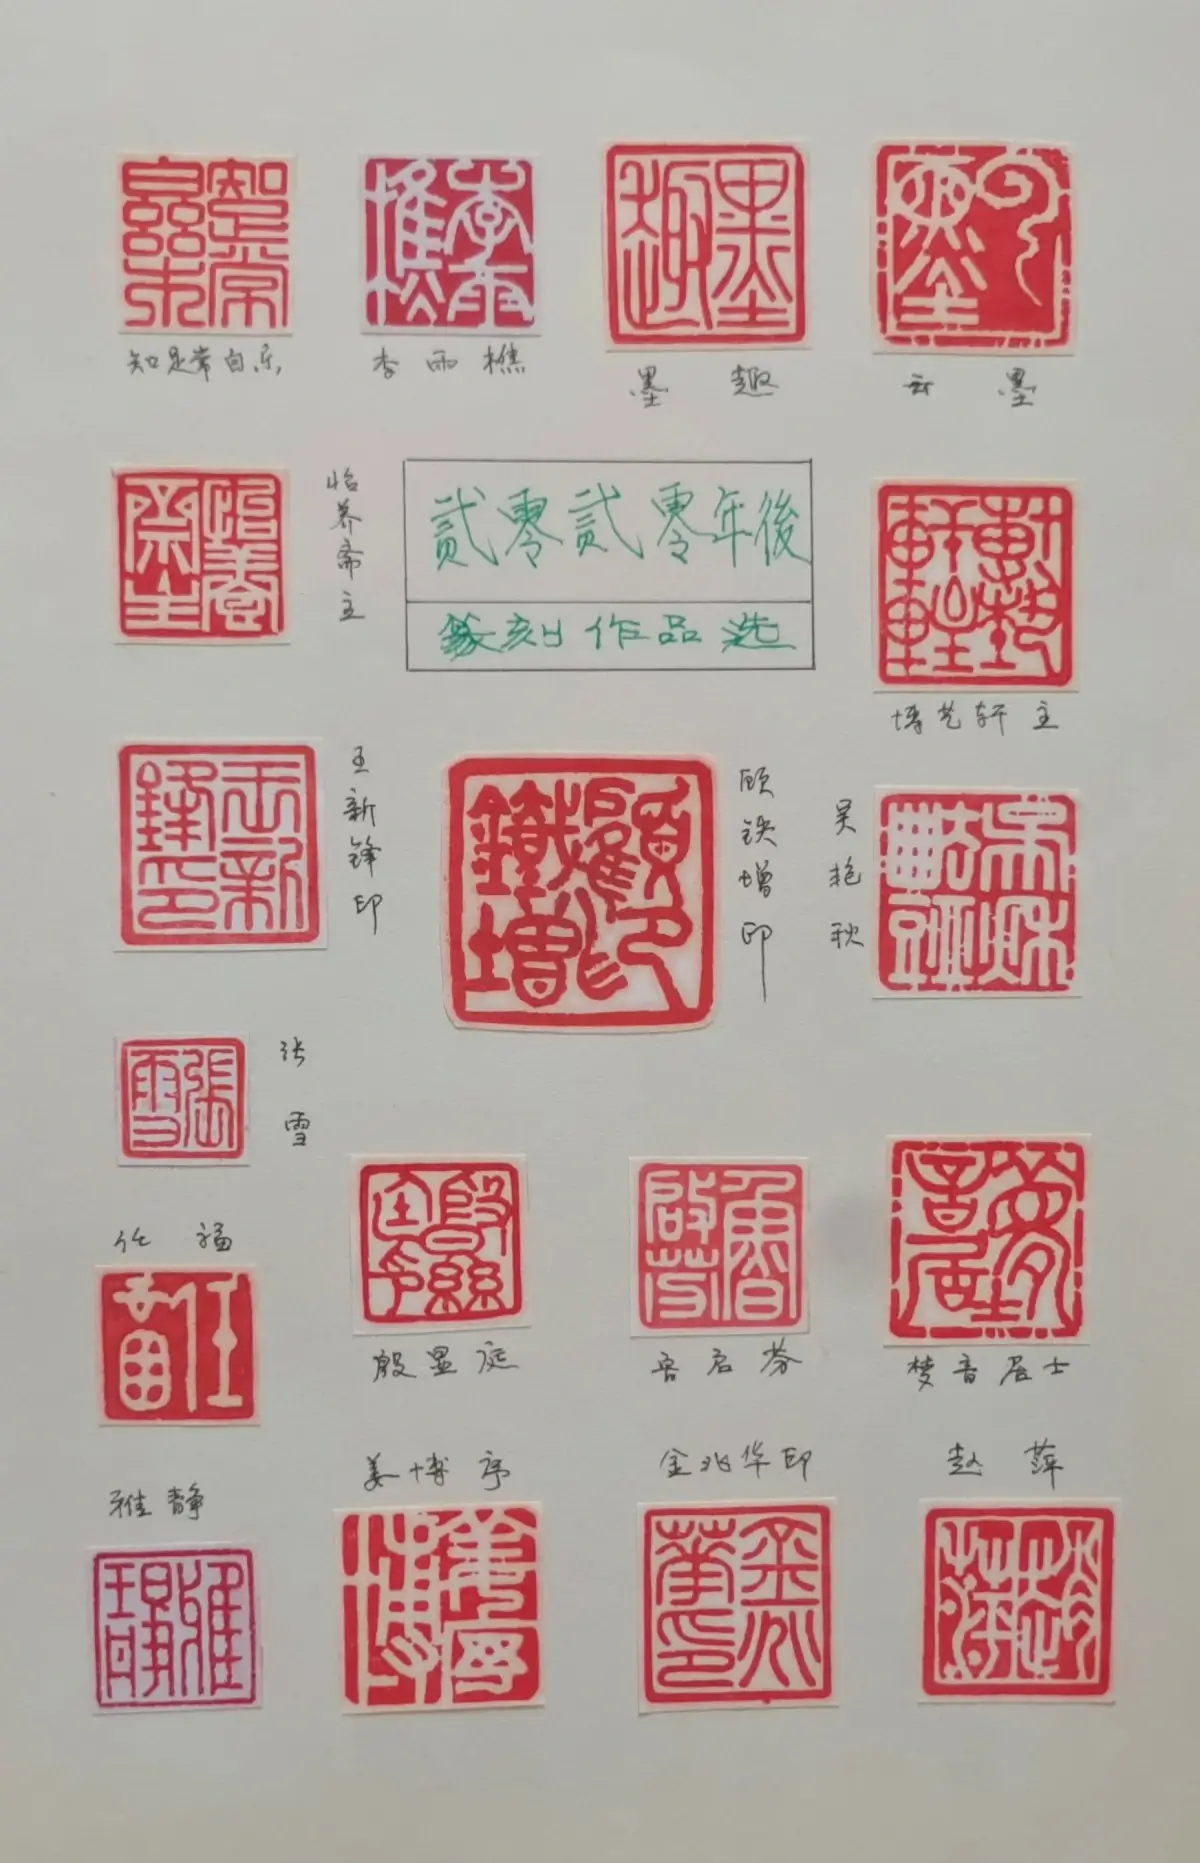 知足常自乐
李雨樵
墨趣
云墨
怡养斋主
贰零贰零年後
篆刻作品选
博艺轩主
王新锋印
顾铁增印
吴艳秋
张雪
任福
殷显庭
鲁启芬
梦音居士
雅静
姜博序
金兆华印
赵萍